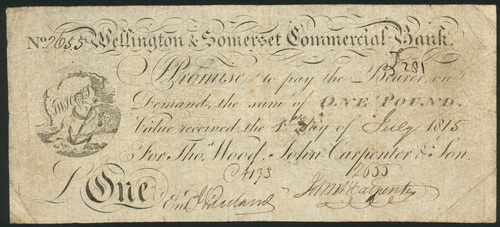 No. 2655 Wellington & Somerset Commercial Bank.
I Promise to pay the Bearer on
Demand, the sum of ONE POUND.
Value received the 1st day of July 1815
For Thos. Wood, John Carpenter & Son.
2655
£ One
Entd.
John Carpenter